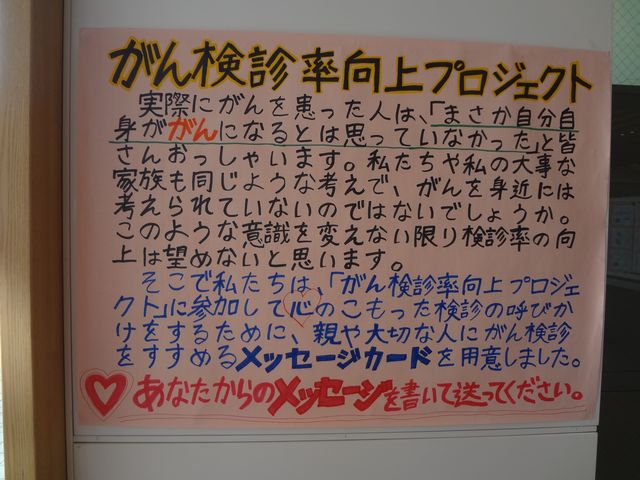 がん検診率向上プロジェクト
実際にがんを患った人は、「まさか自分自
身ががんになるとは思っていなかった」と皆
さんおっしゃいます。私たちや私の大事な
家族も同じような考えで、がんを身近には
考えられていないのではないでしょうか。
このような意識を変えない限り検診率の向
上は望めないと思います。
そこで私たちは、「がん検診率向上プロジェ
クト」に参加して心のこもった検診の呼びか
けをするために、親や大切な人にがん検診
をすすめるメッセージカードを用意しました。
あなたからのメッセージを書いて送ってください。